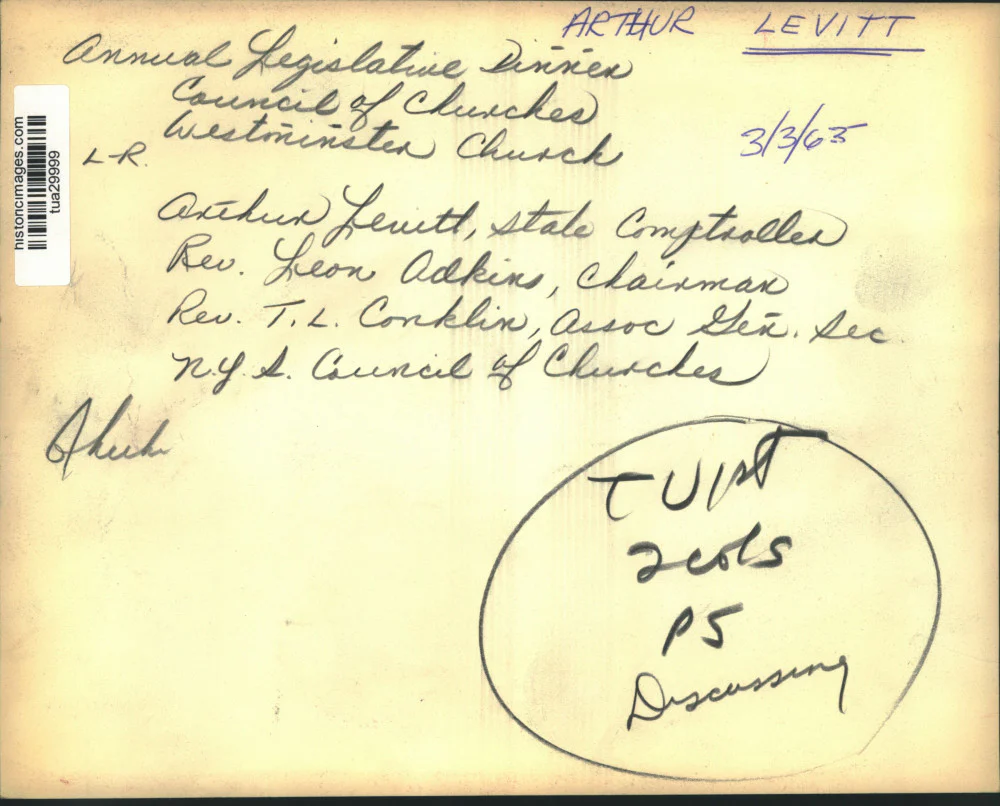 ARTHUR LEVITT
Annual Legislative Dinner
Council of Churches
Westminster Church
3/3/65
L-R.
Arthur Levitt, State Comptroller
Rev. Leon Adkins, Chairman
Rev. T. L. Conklin, Assoc Gen. Sec
N.Y.S. Council of Churches
historicimages.com
tua29999
2 cols
P5
Discussing